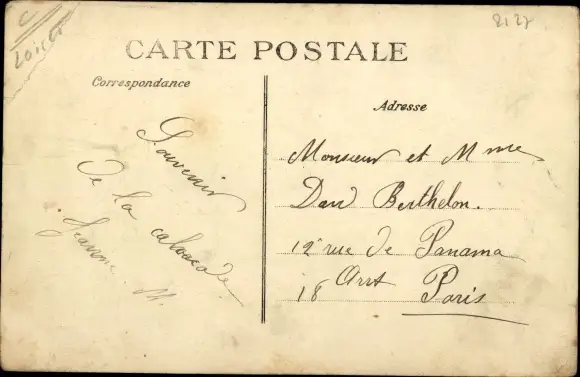 2127
CARTE POSTALE
Correspondance
Adresse
Souvenir
de la cavalcade
Jeanne. M.
Monsieur et Mme
Berthelon.
12 rue de Panama
18 Arrt Paris